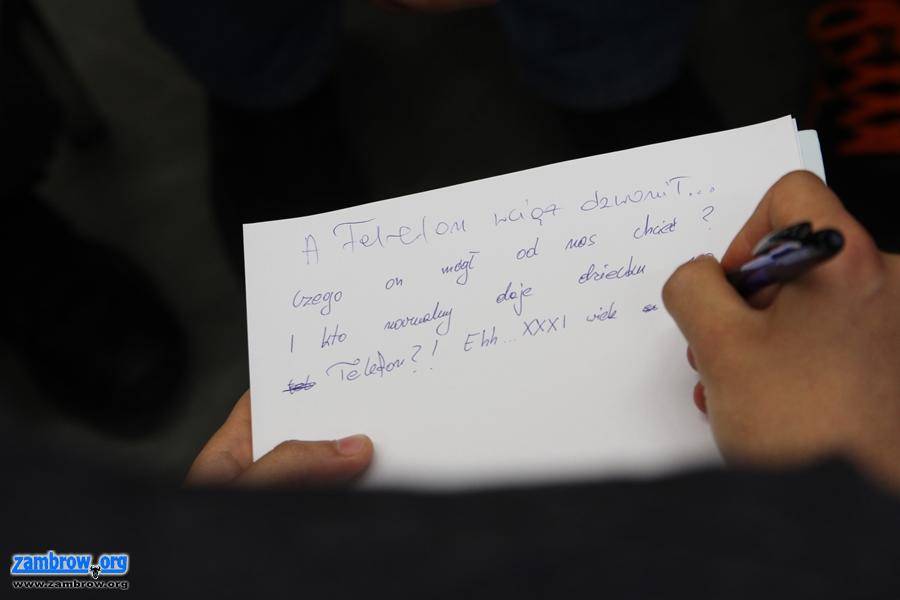 A Telefon wciąż dzwonił...
Czego on mógł od nas chcieć ?
I kto normalny daje dziecku
Telefon?! Ehh... XXXI wiek
zambrow.org
www.zambrow.org